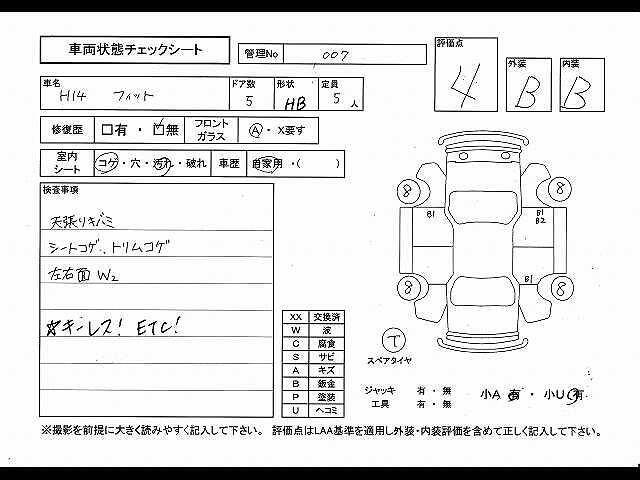 車両状態チェックシート
管理No 007
評価点 4
外装 B
内装 B
車名 H14 フィット
ドア数 5
形状 HB
定員 5 人
修復歴 □有・☑無
フロントガラス Ⓐ・X要す
室内シート コゲ・穴・汚れ・破れ
車歴 自家用・( )
検査事項
天張りキバミ
シートコゲ、トリムコゲ
左右面 W2
☆キーレス! ETC!
XX 交換済
W 波
C 腐食
S サビ
A キズ
B 鈑金
P 塗装
U ヘコミ
8 8
B1 B1
B2
B1
8 8
T
スペアタイヤ
ジャッキ 有・無
工具 有・無
小A 有・小U 有
※撮影を前提に大きく読みやすく記入して下さい。 評価点はLAA基準を適用し外装・内装評価を含めて正しく記入して下さい。